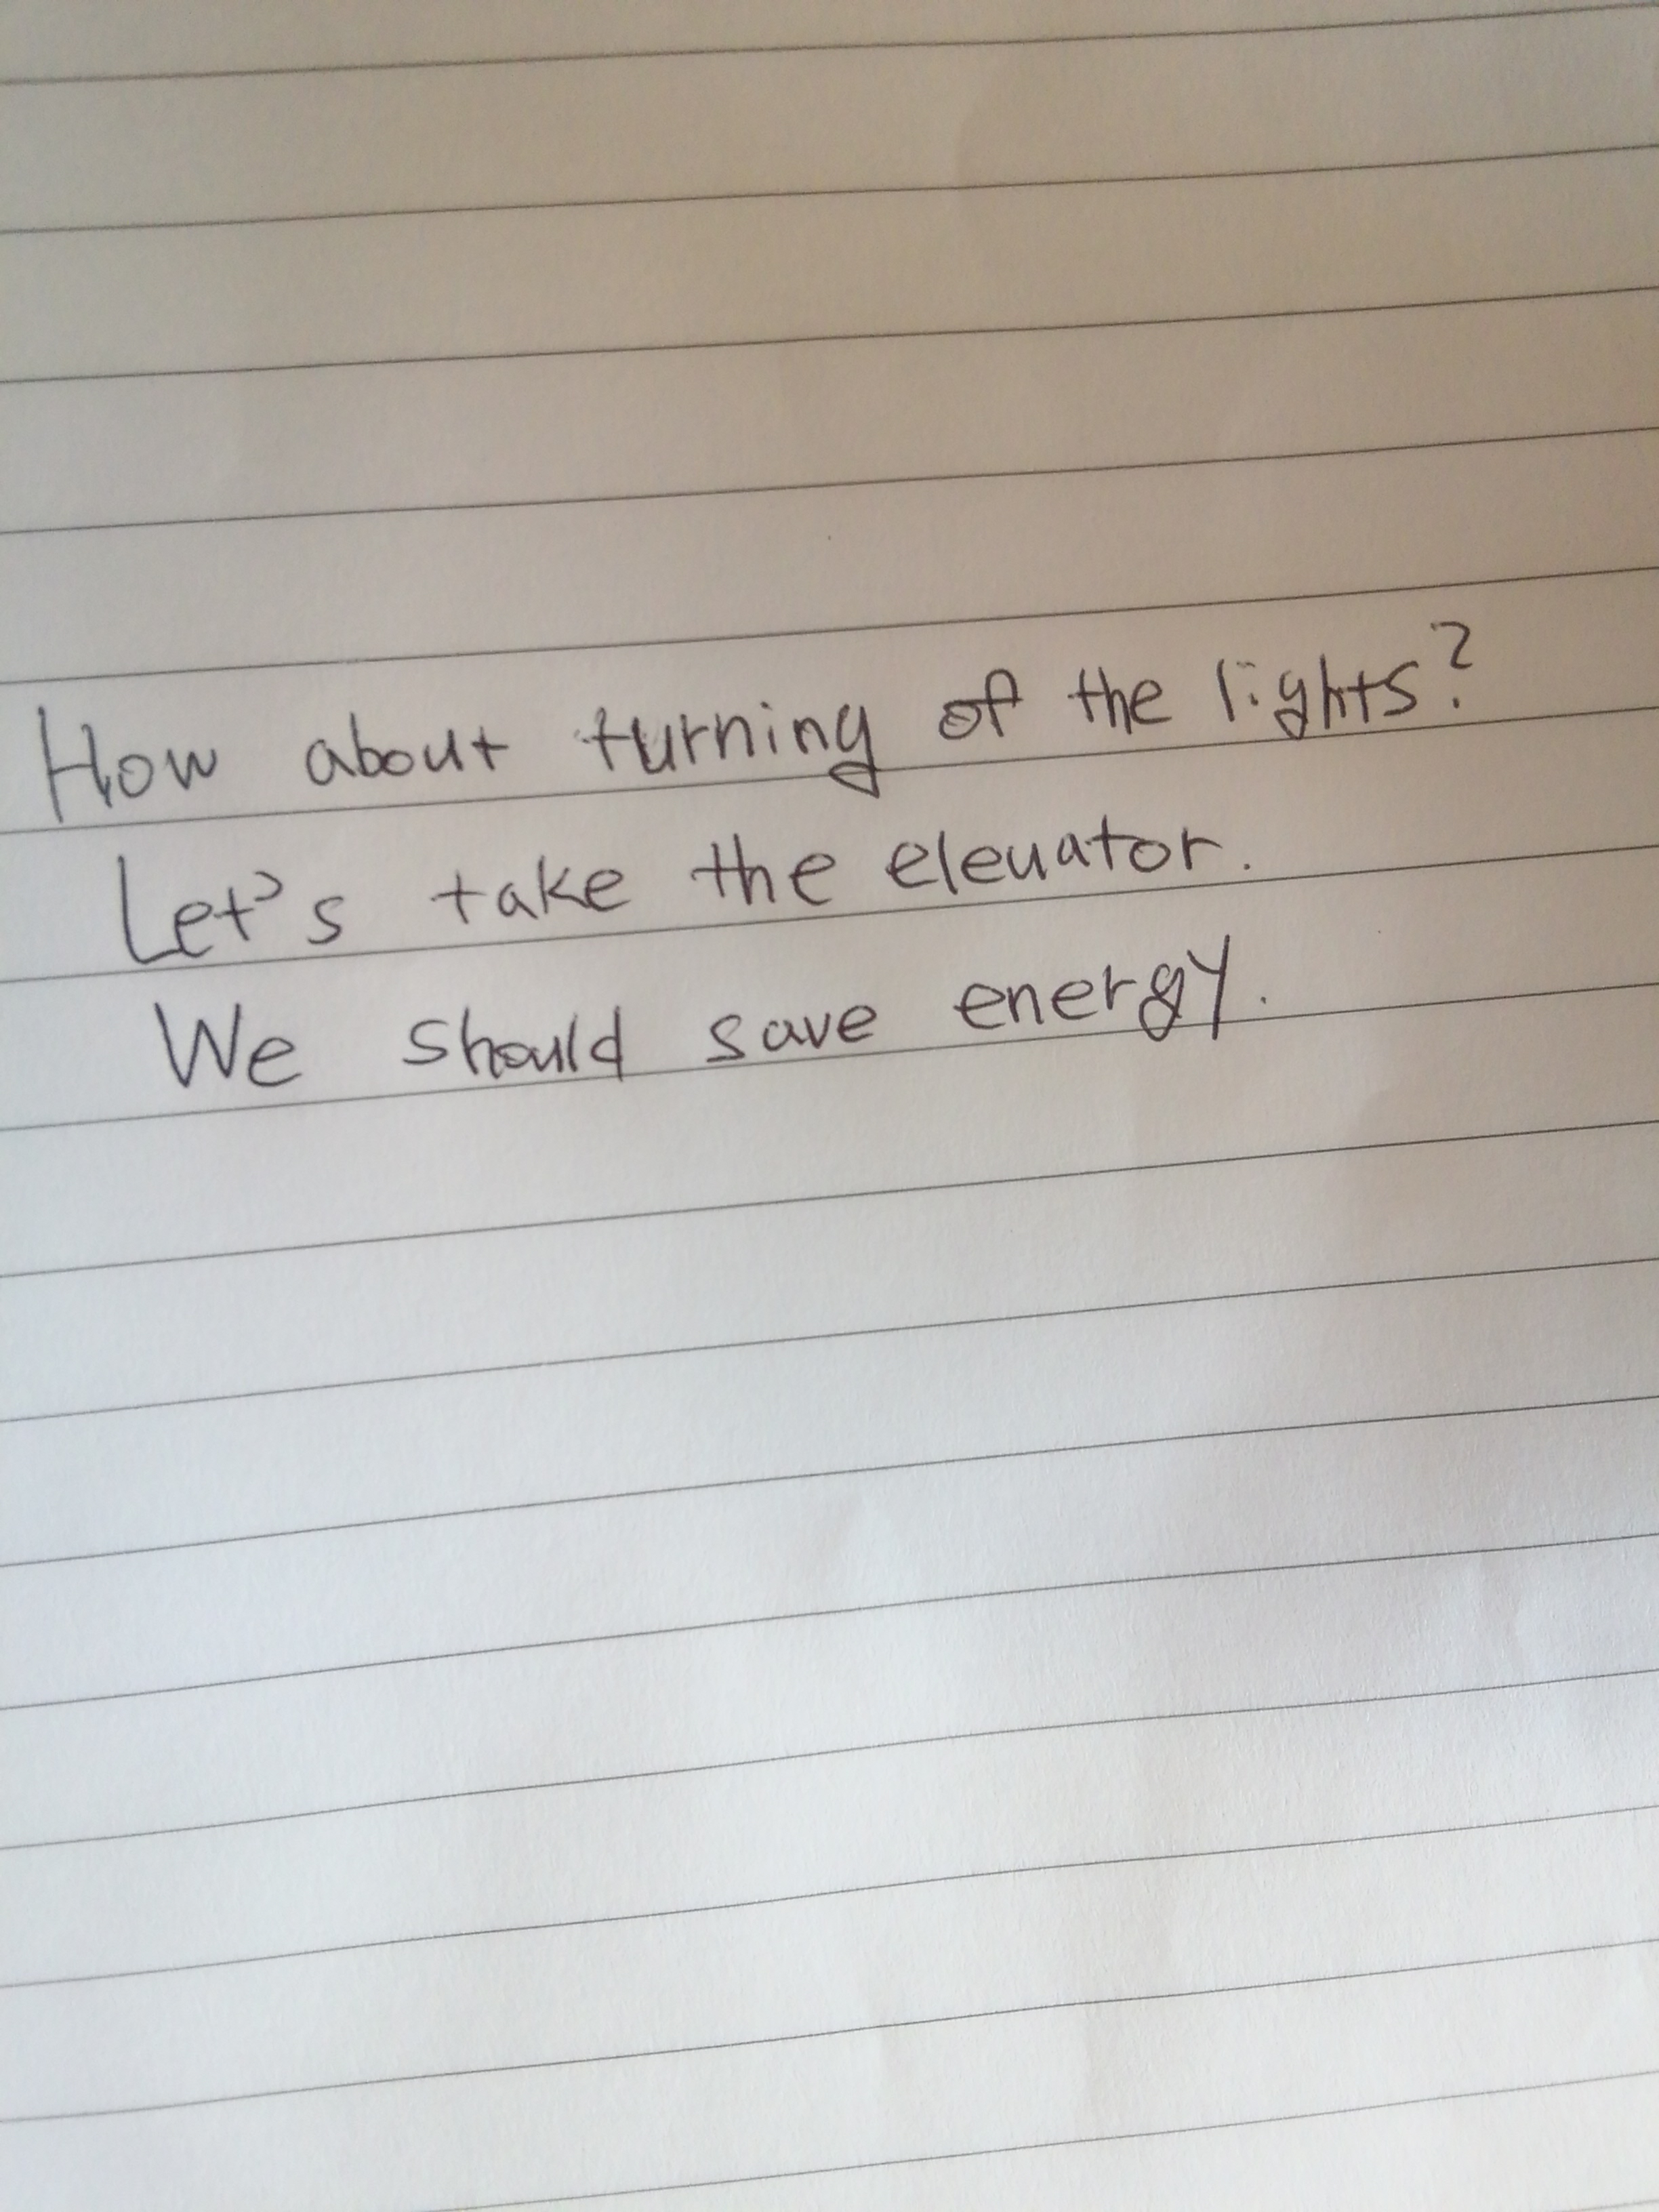 How about turning of the lights?
Let's take the elevator.
We should save energy.